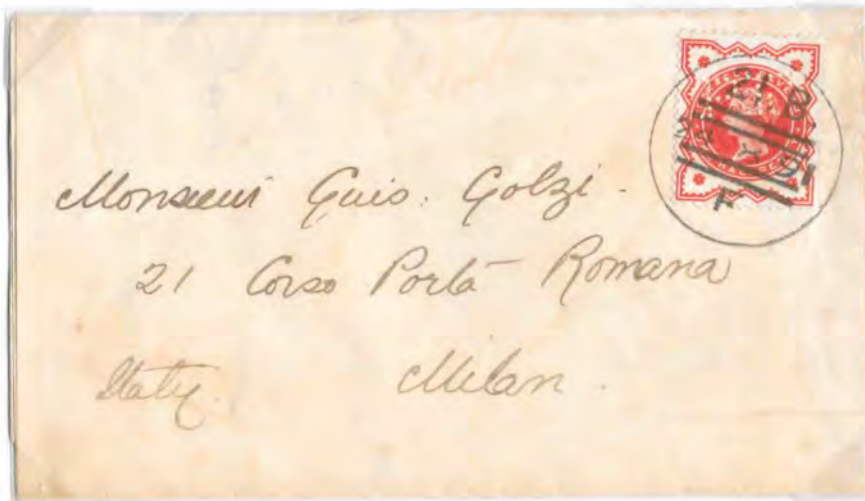 Monsieur Guis. Golzi.
21 Corso Porta Romana
Milan.
Italy.